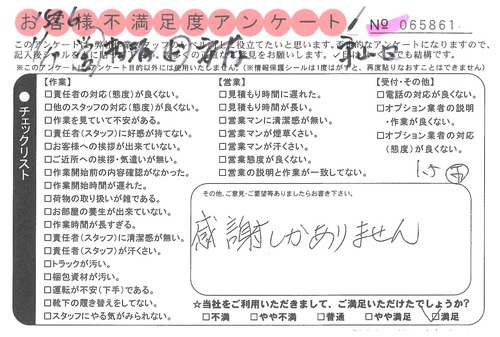 お客様不満足度アンケート
№ 065861
このアンケートは
役立てたいと思います。
※このアンケートはアンケート目的以外には使用いたしません。(※情報保護シールは1度はがすと、再度貼りなおすことはできません)
チェックリスト
【作業】
□責任者の対応(態度)が良くない。
□他のスタッフの対応(態度)が良くない。
□作業を見ていて不安がある。
□責任者(スタッフ)に好感が持てない。
□お客様への挨拶が出来ていない。
□ご近所への挨拶・気遣いが無い。
□作業開始前の内容確認がなかった。
□作業開始時間が遅れた。
□荷物の取り扱いが雑である。
□お部屋の養生が出来ていない。
□作業時間が長すぎる。
□責任者(スタッフ)に清潔感が無い。
□責任者(スタッフ)が汗くさい。
□トラックが汚い。
□梱包資材が汚い。
□運転が不安(下手)である。
□靴下の履き替えをしてない。
□スタッフにやる気がみられない。
【営業】
□見積もり時間に遅れた。
□見積もり時間が長い。
□営業マンに清潔感が無い。
□営業マンが煙草くさい。
□営業マンが汗くさい。
□営業態度が良くない。
□営業の説明と作業が一致してない。
【受付・その他】
□電話の対応が良くない。
□オプション業者の説明・作業が良くない。
□オプション業者の対応(態度)が良くない。
その他、ご意見・ご要望等ありましたらお書き下さい。
感謝しかありません
☆当社をご利用いただきまして、ご満足いただけたでしょうか?
□不満 □やや不満 □普通 □やや満足 ☑満足